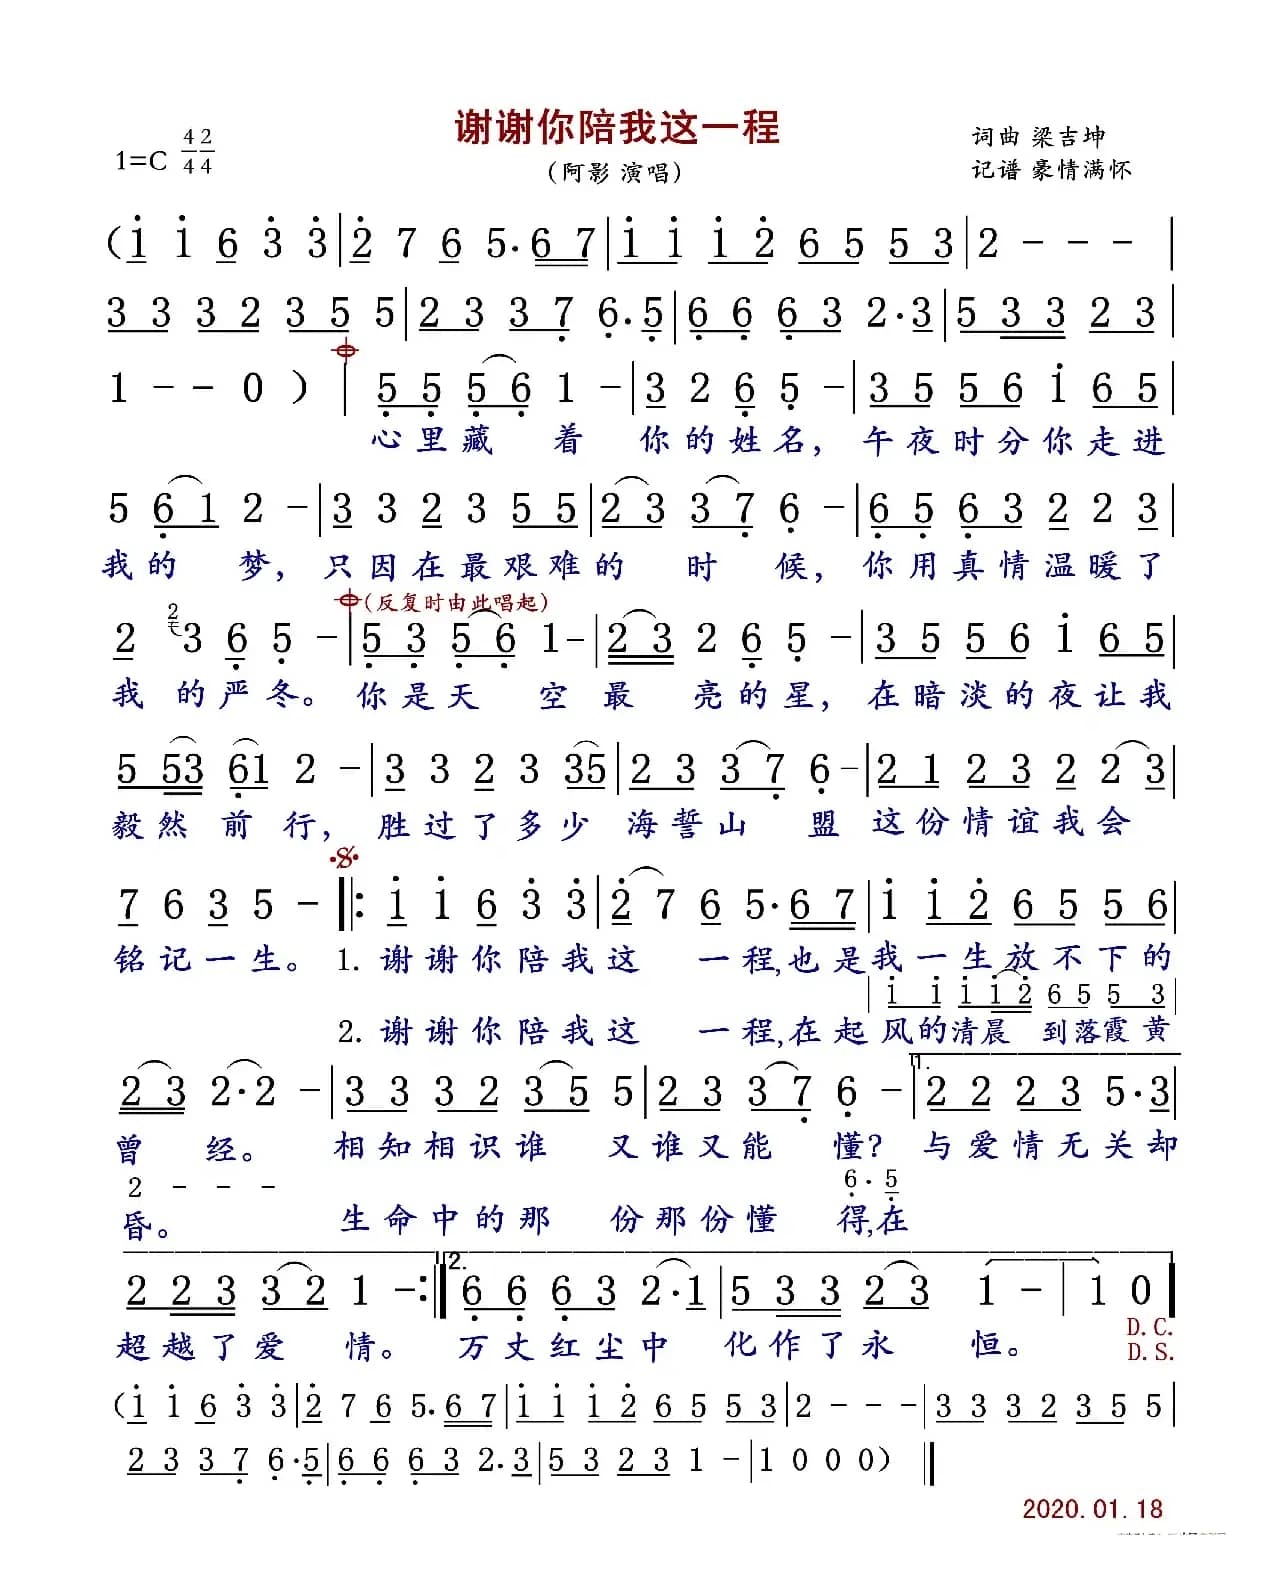 谢谢你陪我这一程
1=C 4/4 2/4
(阿影 演唱)
词曲 梁吉坤
记谱 豪情满怀
(i i 6 3 3|2 7 6 5. 6 7|i i i 2 6 5 5 3|2 - - -|
3 3 3 2 3 5 5|2 3 3 7 6. 5|6 6 6 3 2. 3|5 3 3 2 3|
1 - - 0 )|5 5 5 6 1 -|3 2 6 5 -|3 5 5 6 i 6 5|
心里藏 着 你的姓名, 午夜时分你走进
5 6 1 2 -|3 3 2 3 5 5|2 3 3 7 6 -|6 5 6 3 2 2 3|
我的 梦, 只因在最艰难的 时 候, 你用真情温暖了
(反复时由此唱起)
2 2 3 6 5 -|5 3 5 6 1 -|2 3 2 6 5 -|3 5 5 6 i 6 5|
我 的严冬。 你是天 空 最 亮的星, 在暗淡的夜让我
5 53 61 2 -|3 3 2 3 35|2 3 3 7 6 -|2 1 2 3 2 2 3|
毅然 前 行, 胜过了多少 海誓山 盟 这份情谊我会
7 6 3 5 -|: i i 6 3 3|2 7 6 5. 6 7|i i 2 6 5 5 6|
铭记一生。 1. 谢谢你陪我这 一程,也是我一生放不下的
|i i i i 2 6 5 5 3|
2. 谢谢你陪我这 一程,在起风的清晨 到落霞黄
1.
2 3 2. 2 -|3 3 3 2 3 5 5|2 3 3 7 6 -|2 2 2 3 5. 3|
曾 经。 相知相识谁 又谁又能 懂? 与爱情无关却
2 - - - 6. 5
昏。 生命中的那 份那份懂 得,在
2.
2 2 3 3 2 1 -:|6 6 6 3 2. 1|5 3 3 2 3 1 -|1 0|
超越了爱 情。 万丈红尘中 化作了永 恒。
D.C.
D.S.
(i i 6 3 3|2 7 6 5. 6 7|i i i 2 6 5 5 3|2 - - -|3 3 3 2 3 5 5|
2 3 3 7 6. 5|6 6 6 3 2. 3|5 3 2 3 1 -|1 0 0 0)||
2020.01.18